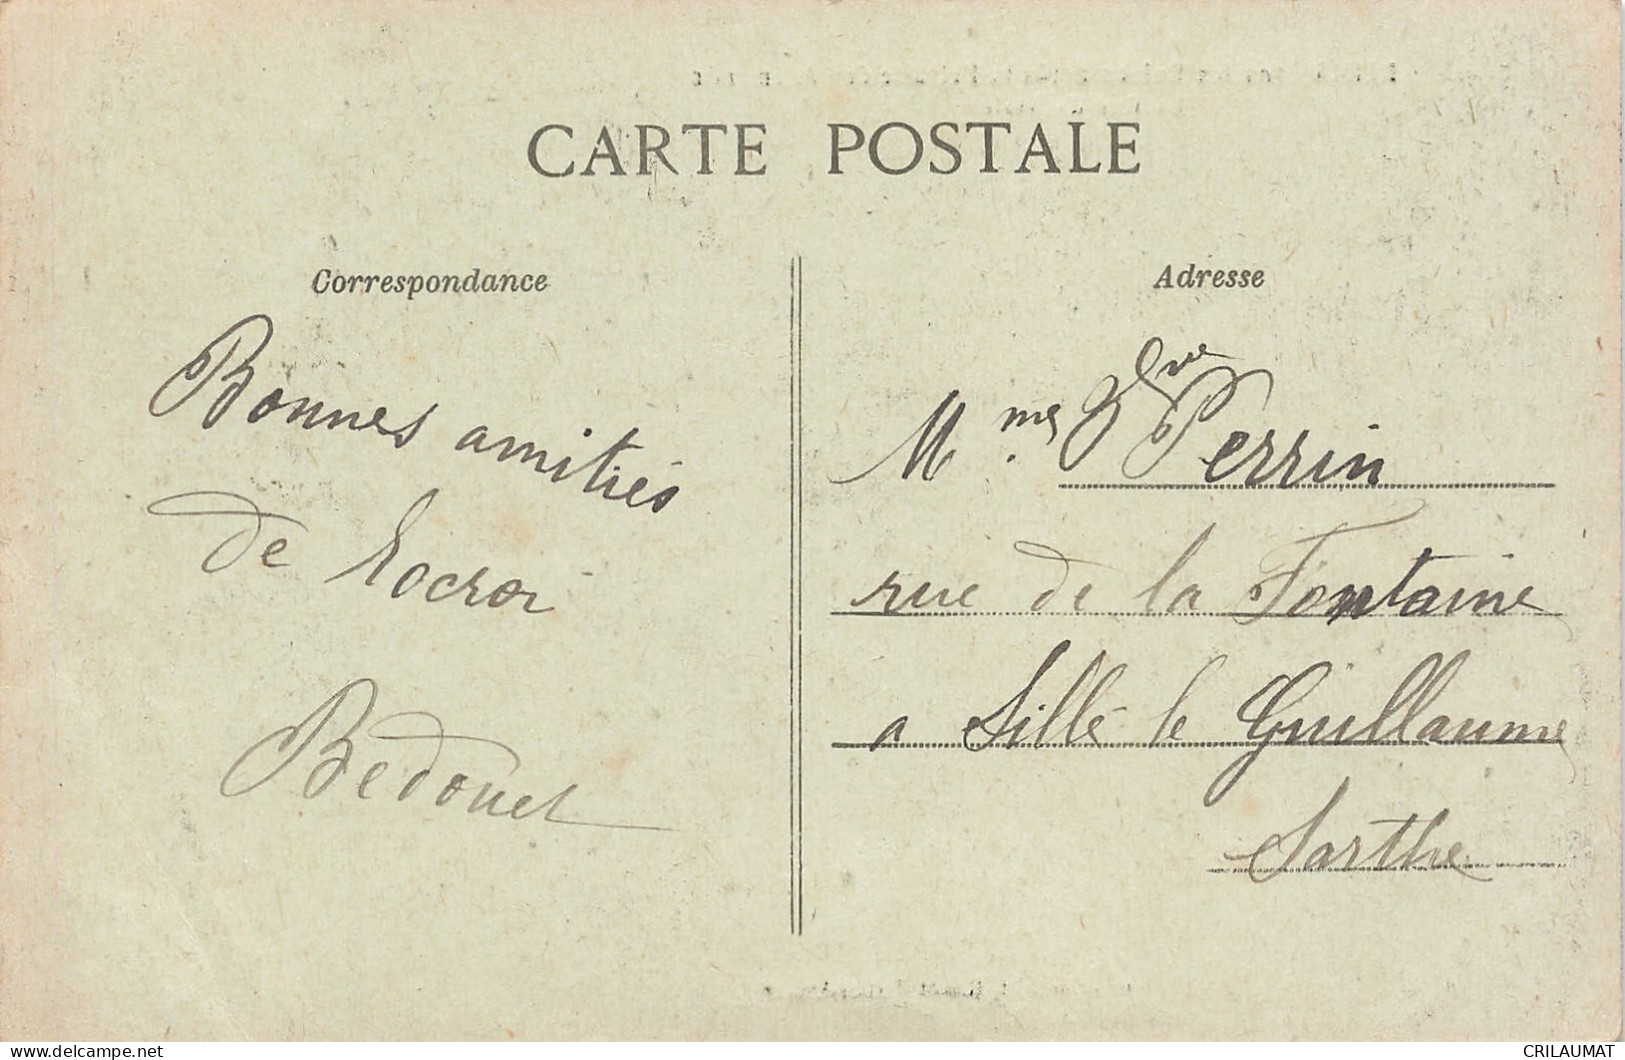 CARTE POSTALE
Correspondance
Bonnes amitiés
de Rocroi
Bedouet
Adresse
Mme Vve Perrin
rue de la Fontaine
a Sillé le Guillaume
Sarthe
CRILAUMAT